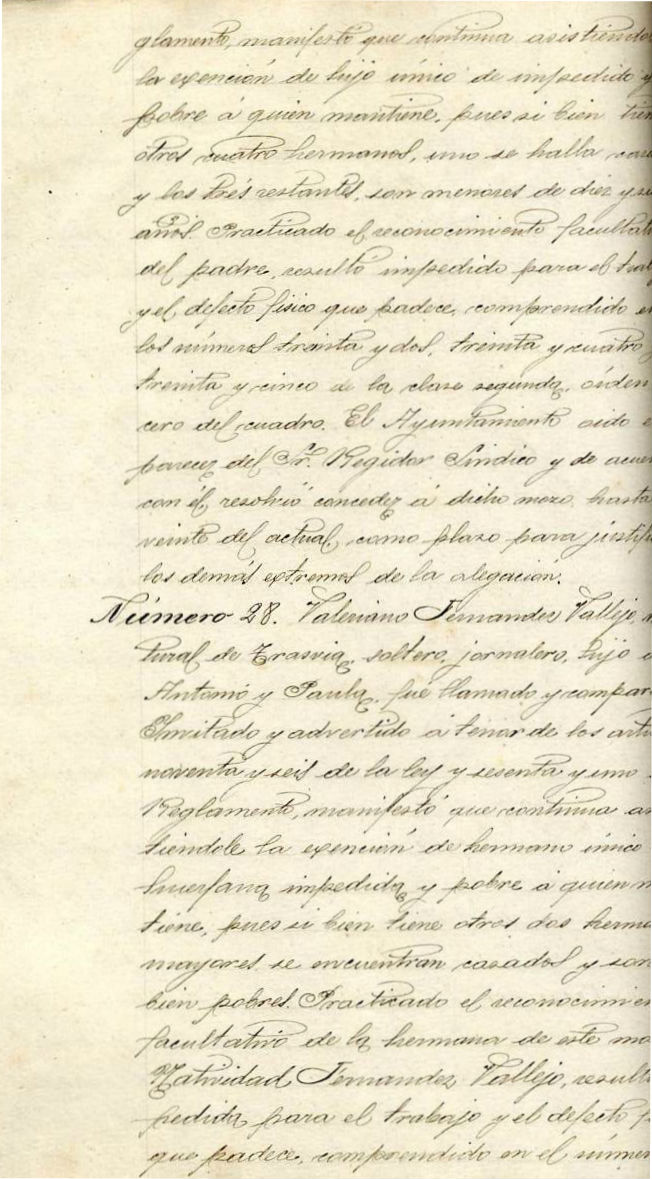 glamento, manifestó que continua asistiendo
la exención de hijo único de impedido y
pobre á quien mantiene, pues si bien tien
otros cuatro hermanos, uno se halla casa
y los trés restantes, son menores de diez y si
años. Practicado el reconocimiento facultati
del padre, resultó impedido para el traba
y el defecto fisico que padece, comprendido en
los números treinta y dos, treinta y cuatro y
treinta y cinco de la clase segunda, órden
cero del cuadro. El Ayuntamiento oido e
parecer del Sr. Regidor Sindico y de acuer
con él, resolvió conceder á dicho mozo hasta
veinte del actual, como plazo para justifi
los demás extremos de la alegación.
Número 28. Valeriano Fernandez Vallejo, n
tural de Trasvia, soltero, jornalero, hijo d
Antonio y Paula, fué llamado y compare
Invitado y advertido á tenor de los artí
noventa y seis de la ley y sesenta y uno
Reglamento, manifestó que continua as
tiéndole la exención de hermano único
huerfana impedida y pobre á quien m
tiene, pues si bien tiene otros dos herma
mayores, se encuentran casados y son
bien pobres. Practicado el reconocimien
facultativo de la hermana de este mo
Natividad Fernandez Vallejo, result
pedida para el trabajo y el defecto f
que padece, comprendido en el númer